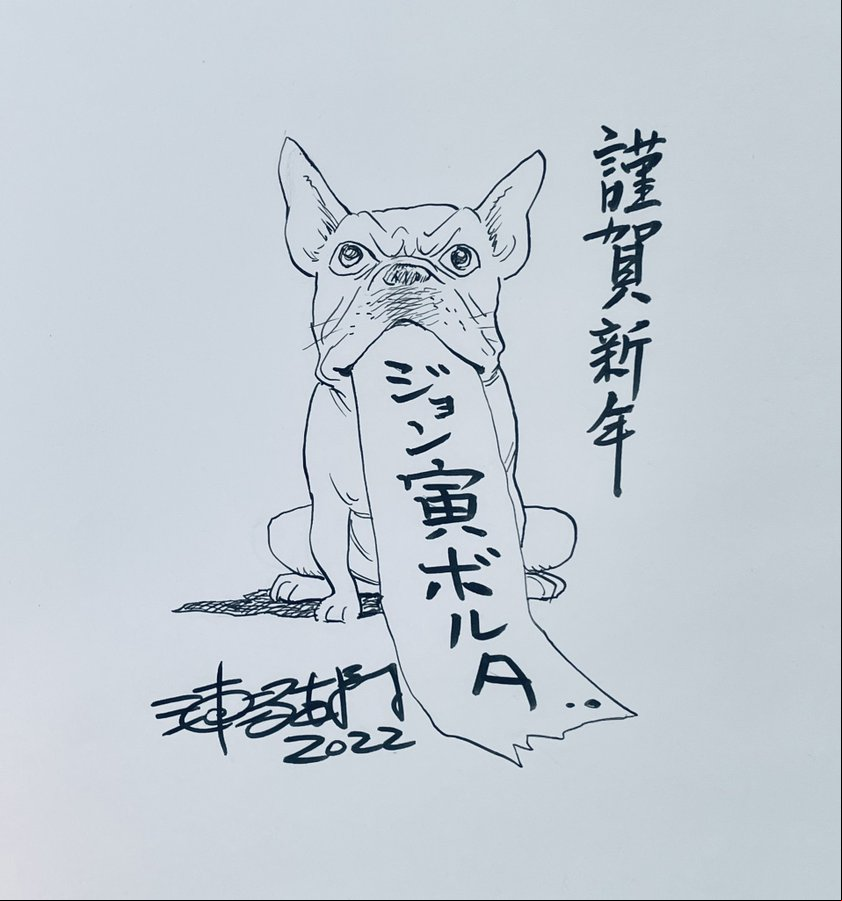 謹賀新年
ジョン寅ボルA..
2022